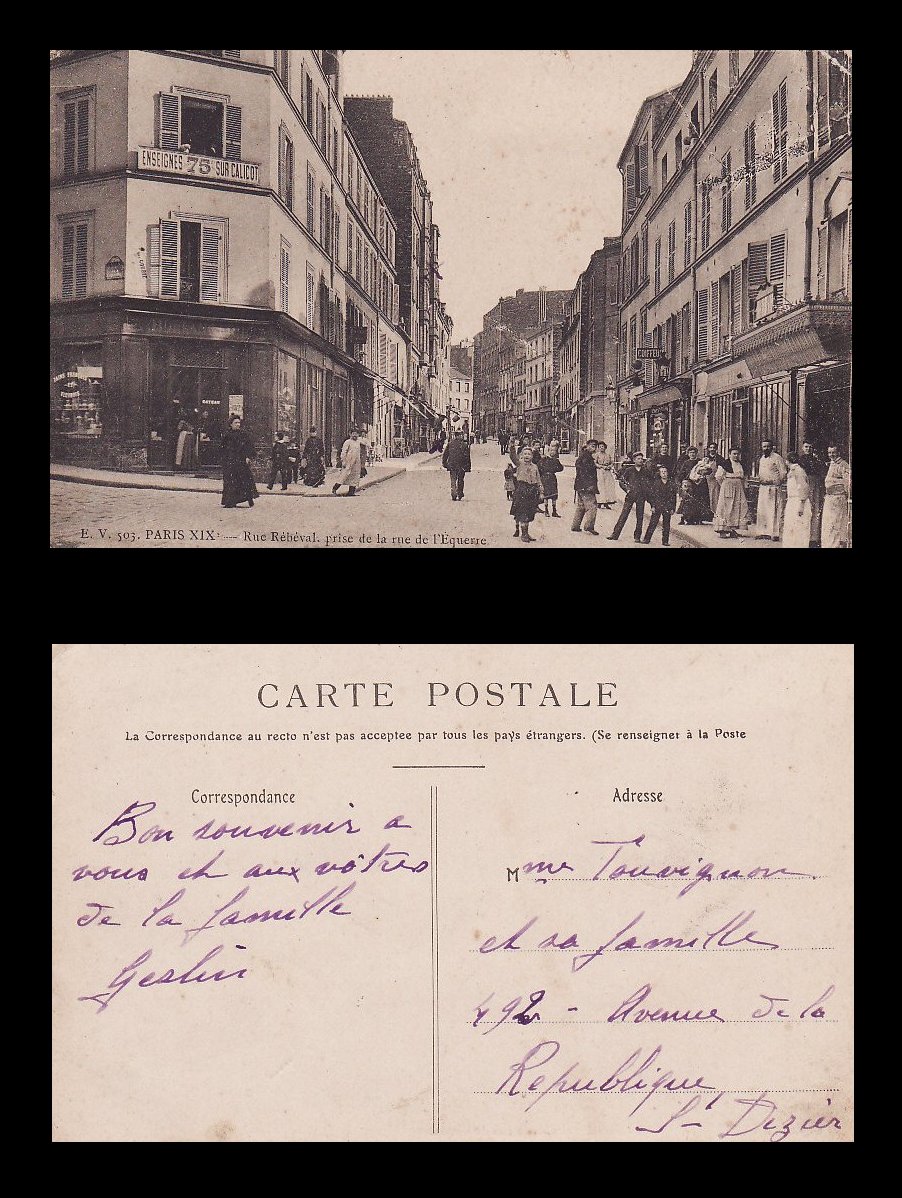 ENSEIGNES 75 SUR CALICOT
COIFFEUR
E. V. 503. PARIS XIXᵉ — Rue Rébéval, prise de la rue de l'Equerre
CARTE POSTALE
La Correspondance au recto n'est pas acceptee par tous les pays étrangers. (Se renseigner à la Poste
Correspondance
Bon souvenir a
vous et aux vôtres
de la famille
Geslin
Adresse
Mme Touvignon
et sa famille
492 - Avenue de la
République
St Dizier